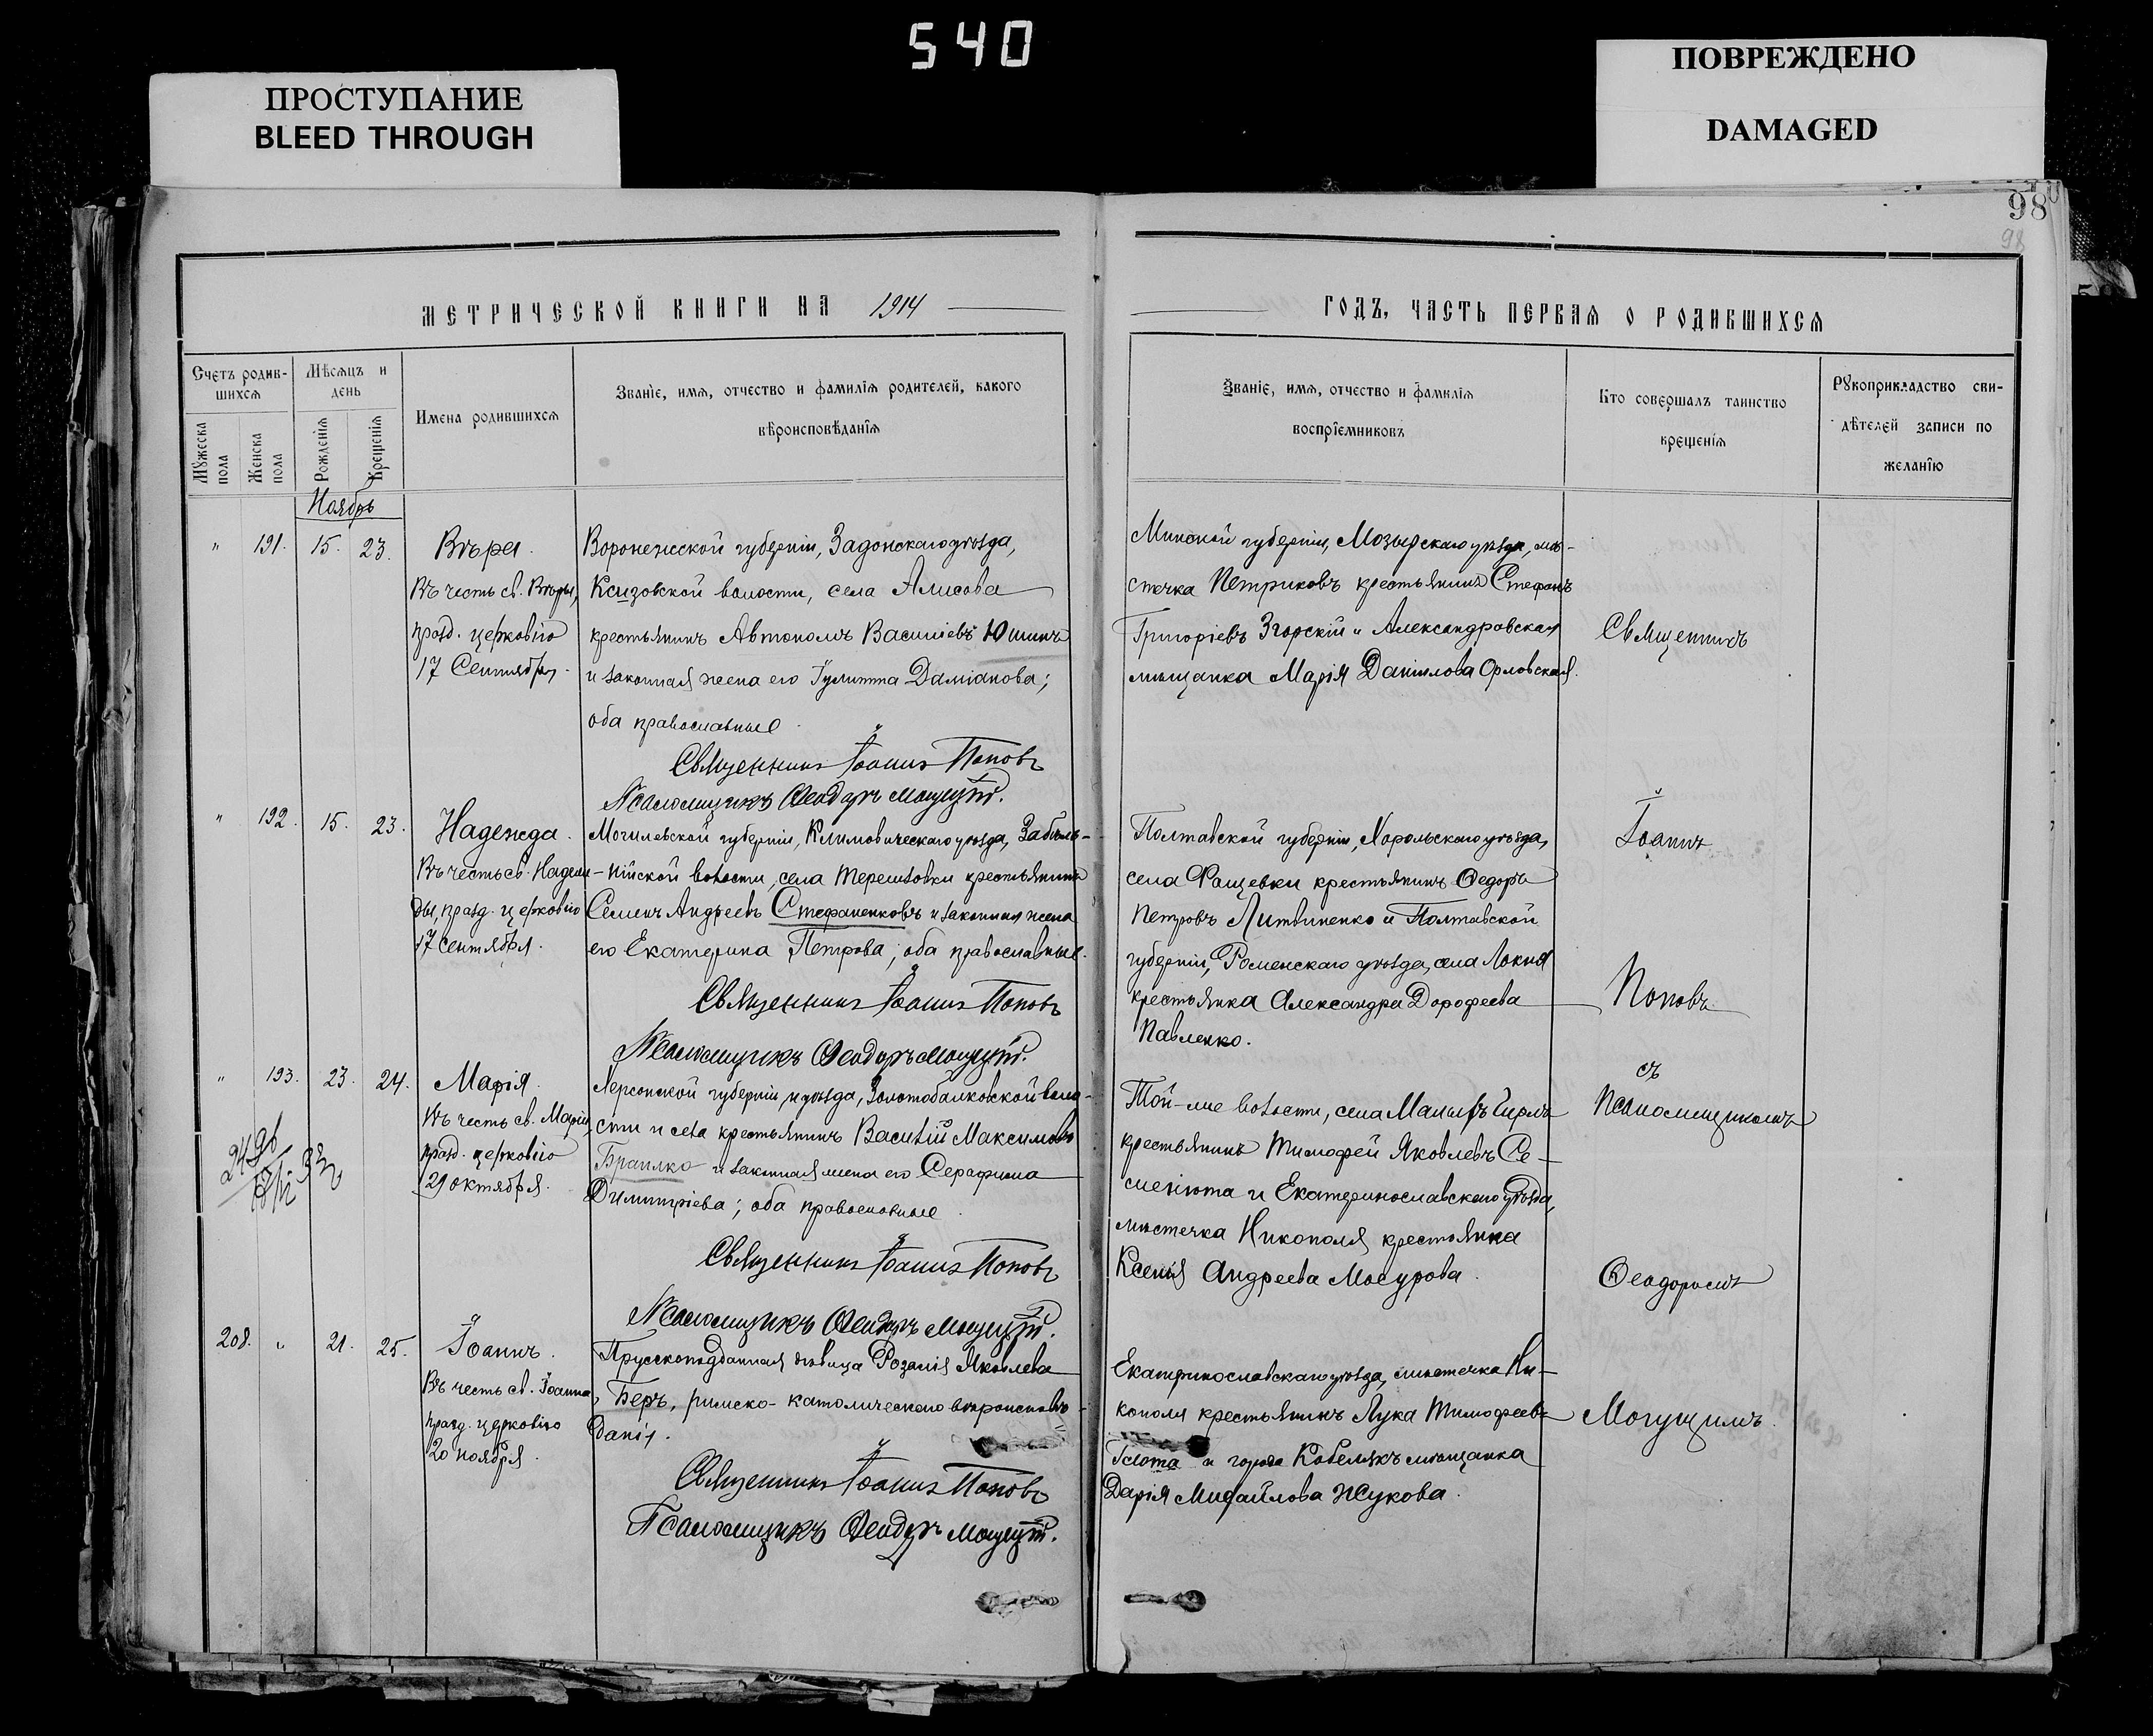 540
ПРОСТУПАНИЕ
BLEED THROUGH
ПОВРЕЖДЕНО
DAMAGED
98
98
МЕТРИЧЕСКОЙ КНИГИ НА 1914
ГОДЪ, ЧАСТЬ ПЕРВАЯ О РОДИВШИХСЯ
Счетъ родив-
шихся
Мѣсяцъ и
день
Мужеска
пола
Женска
пола
Рожденія
Крещенія
Имена родившихся
Званіе, имя, отчество и фамилія родителей, какого
вѣроисповѣданія
Званіе, имя, отчество и фамилія
воспріемниковъ
Кто совершалъ таинство
крещенія
Рукоприкладство сви-
дѣтелей записи по
желанію
Ноябрь
" 191. 15. 23.
Вѣра.
Въ честь св. Вѣры,
празд. церковію
17 Сентября.
Воронежской губерніи, Задонскаго уѣзда,
Ксизовской волости, села Алисова
крестьянинъ Автономъ Василіевъ Юшинъ
и законная жена его Іулитта Даміанова;
оба православные.
Священникъ Іоаннъ Поповъ
Псаломщикъ Ѳеодоръ Могущій.
Минской губерніи, Мозырскаго уѣзда, мѣ-
стечка Петриковъ крестьянинъ Стефанъ
Григоріевъ Згорскій и Александровская
мѣщанка Марія Даніилова Орловская.
Священникъ
" 192. 15. 23.
Надежда.
Въ честь св. Надеж-
ды, празд. церковію
17 Сентября.
Могилевской губерніи, Климовическаго уѣзда, Забѣлы-
шійской волости, села Терешовки крестьянинъ
Семенъ Андреевъ Стефаненковъ и законная жена
его Екатерина Петрова; оба православные.
Священникъ Іоаннъ Поповъ
Псаломщикъ Ѳеодоръ Могущій.
Полтавской губерніи, Хорольскаго уѣзда,
села Фащевки крестьянинъ Ѳедоръ
Петровъ Литвиненко и Полтавской
губерніи, Роменскаго уѣзда, села Локня
крестьянка Александра Дорофеева
Павленко.
Іоаннъ
Поповъ
" 193. 23. 24.
Марія.
Въ честь св. Маріи,
празд. церковію
29 октября.
Херсонской губерніи, и уѣзда, Золотобалковской воло-
сти и села крестьянинъ Василій Максимовъ
Браилко и законная жена его Серафима
Димитріева; оба православные.
Священникъ Іоаннъ Поповъ
Псаломщикъ Ѳеодоръ Могущій.
Той-же волости, села
крестьянинъ Тимофей Яковлевъ Се-
менюта и Екатеринославскаго уѣзда,
мѣстечка Никополя крестьянка
Ксенія Андреева Мосурова.
съ
Псаломщикомъ
Ѳеодоромъ
208. " 21. 25.
Іоаннъ.
Въ честь св. Іоанна,
празд. церковію
20 ноября.
Прусскоподданная дѣвица Розалія Яковлева
Беръ, римско-католическаго вѣроисповѣ-
данія.
Священникъ Іоаннъ Поповъ
Псаломщикъ Ѳеодоръ Могущій.
Екатеринославскаго уѣзда, мѣстечка Ни-
кополя крестьянинъ Лука Тимофеевъ
и города Кобелякъ мѣщанка
Дарія Михайлова Жукова.
Могущимъ.